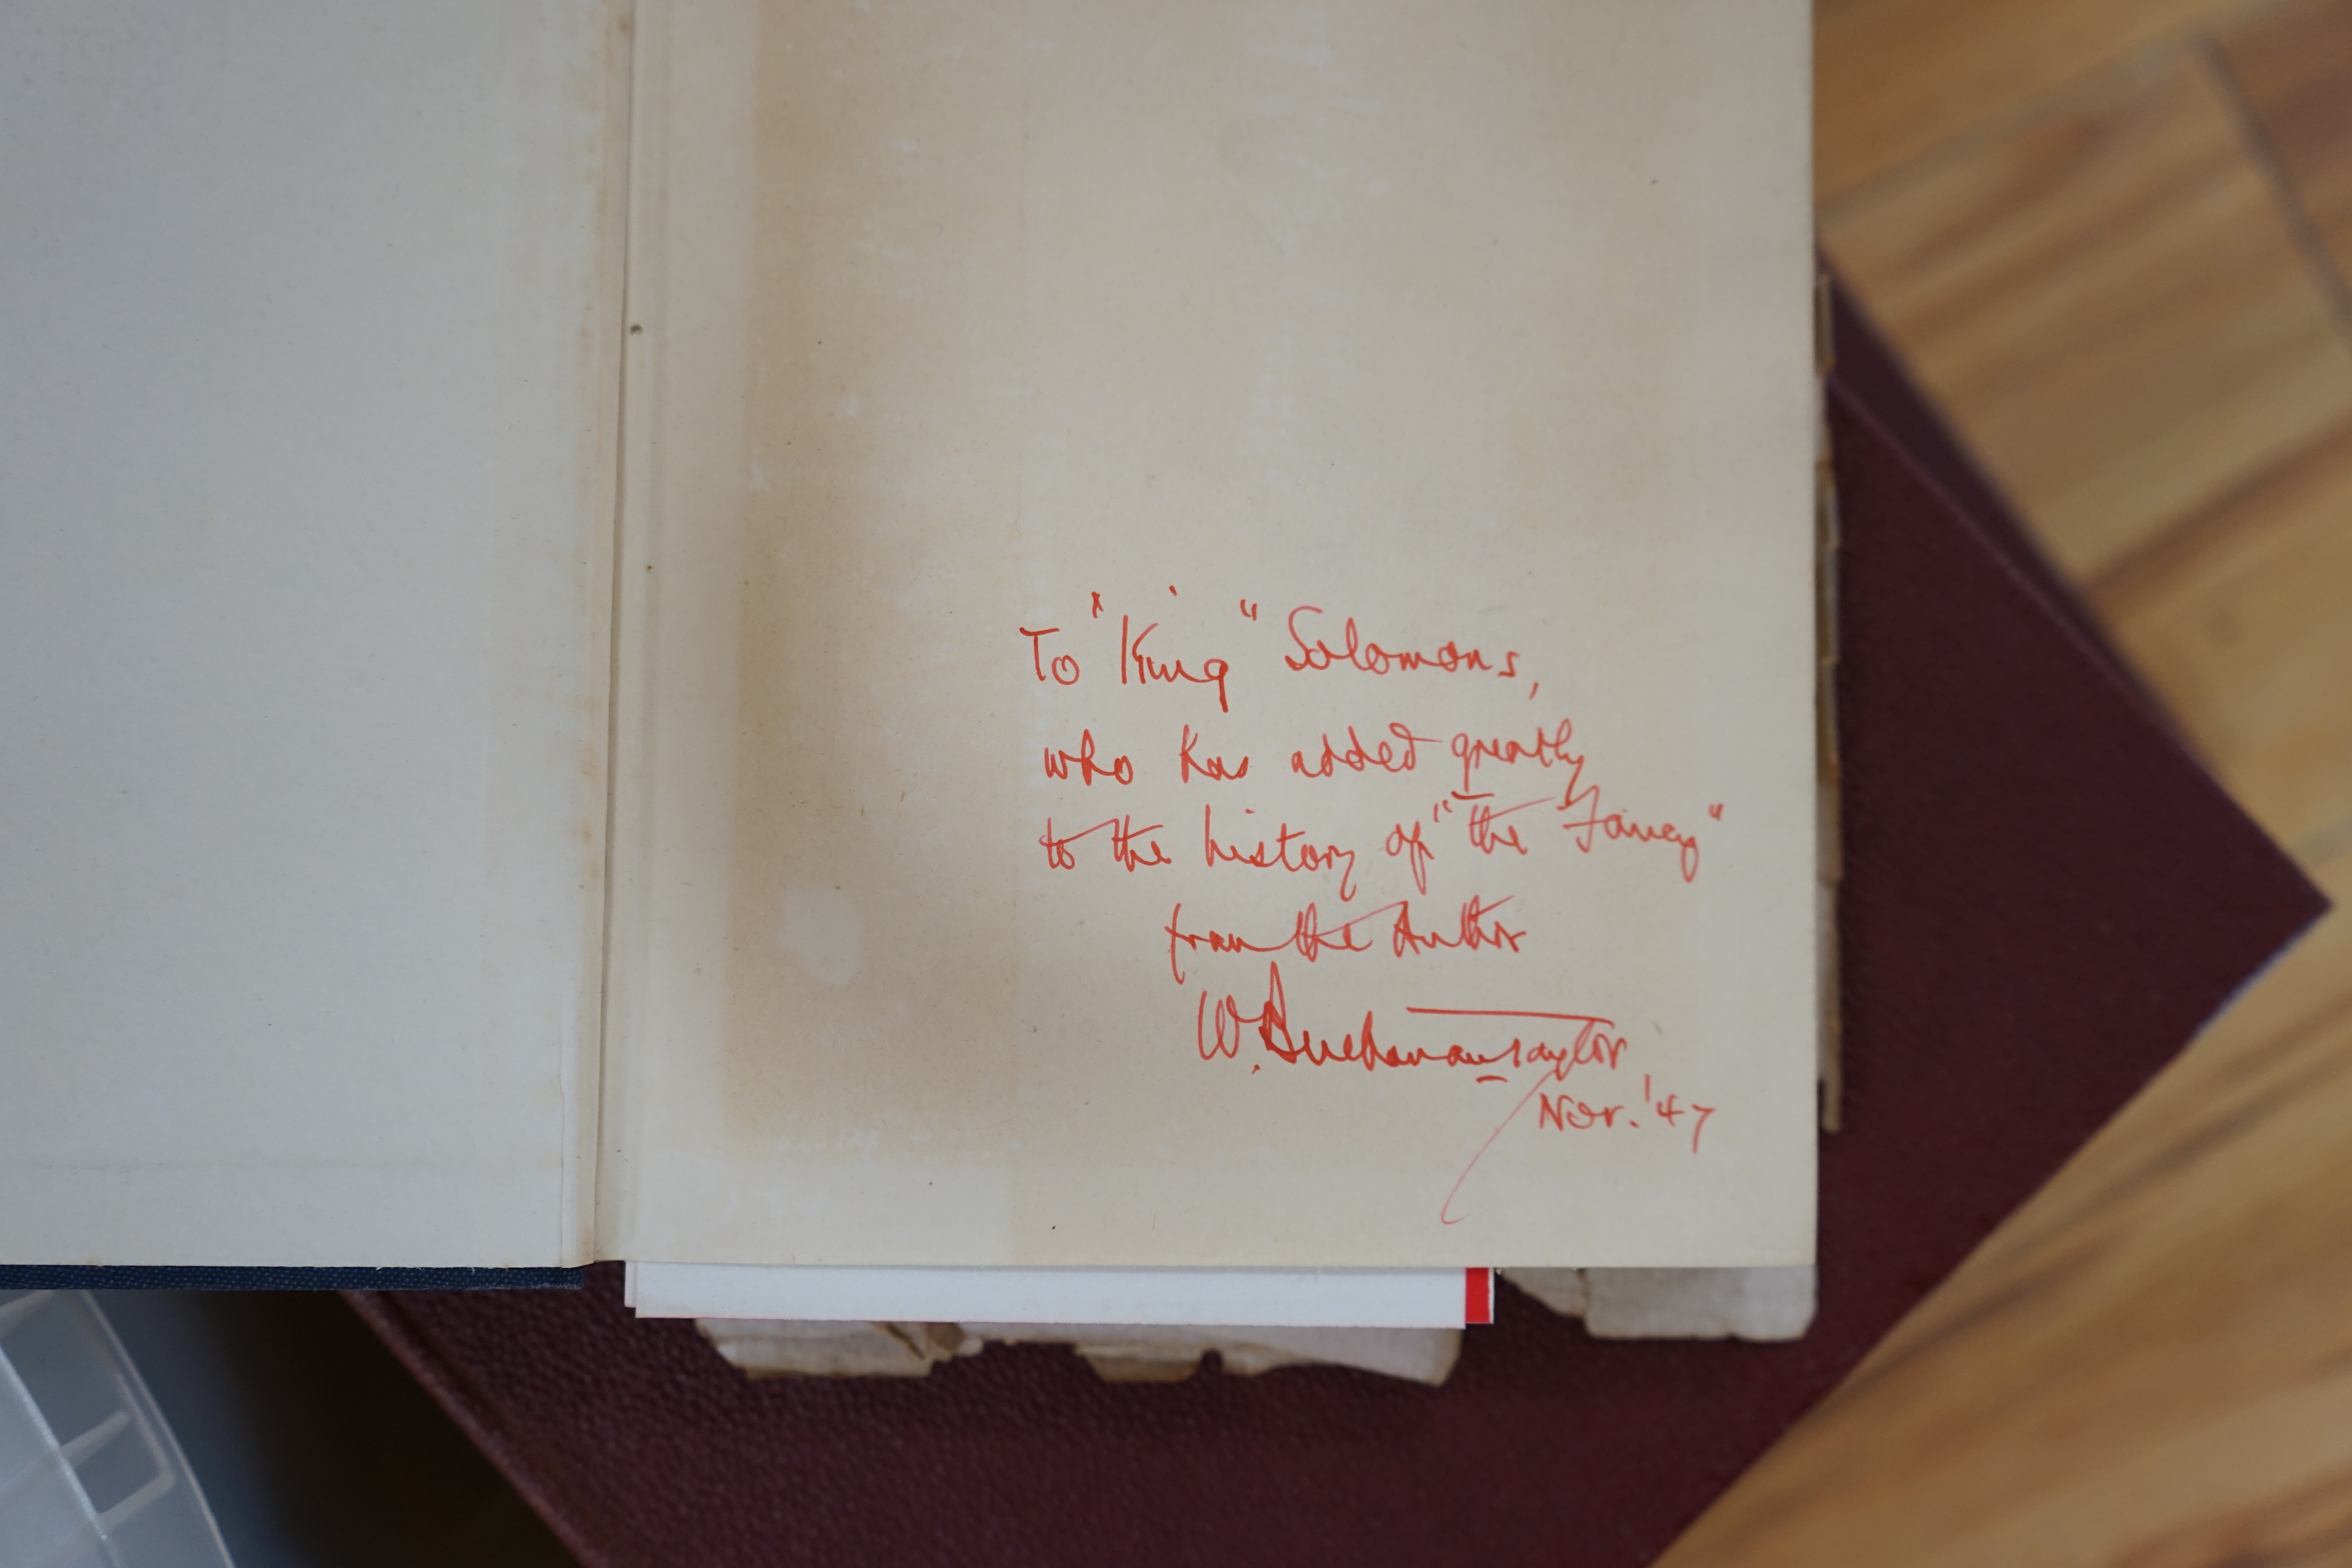 To "King" Solomons,
who has added greatly
to the history of "the Fancy"
from the Author
W. Buchanan-Taylor
Nov. '47